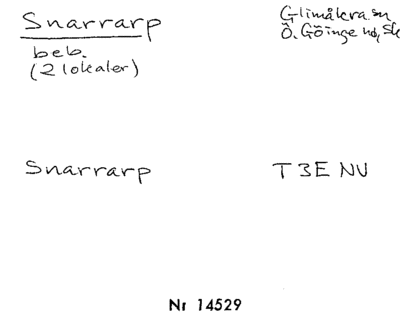 Snarrarp
Glimåkra sn
beb.
Ö. Göinge hd, Sk
(2 lokaler)
Snarrarp
T3E NV
Nr 14529